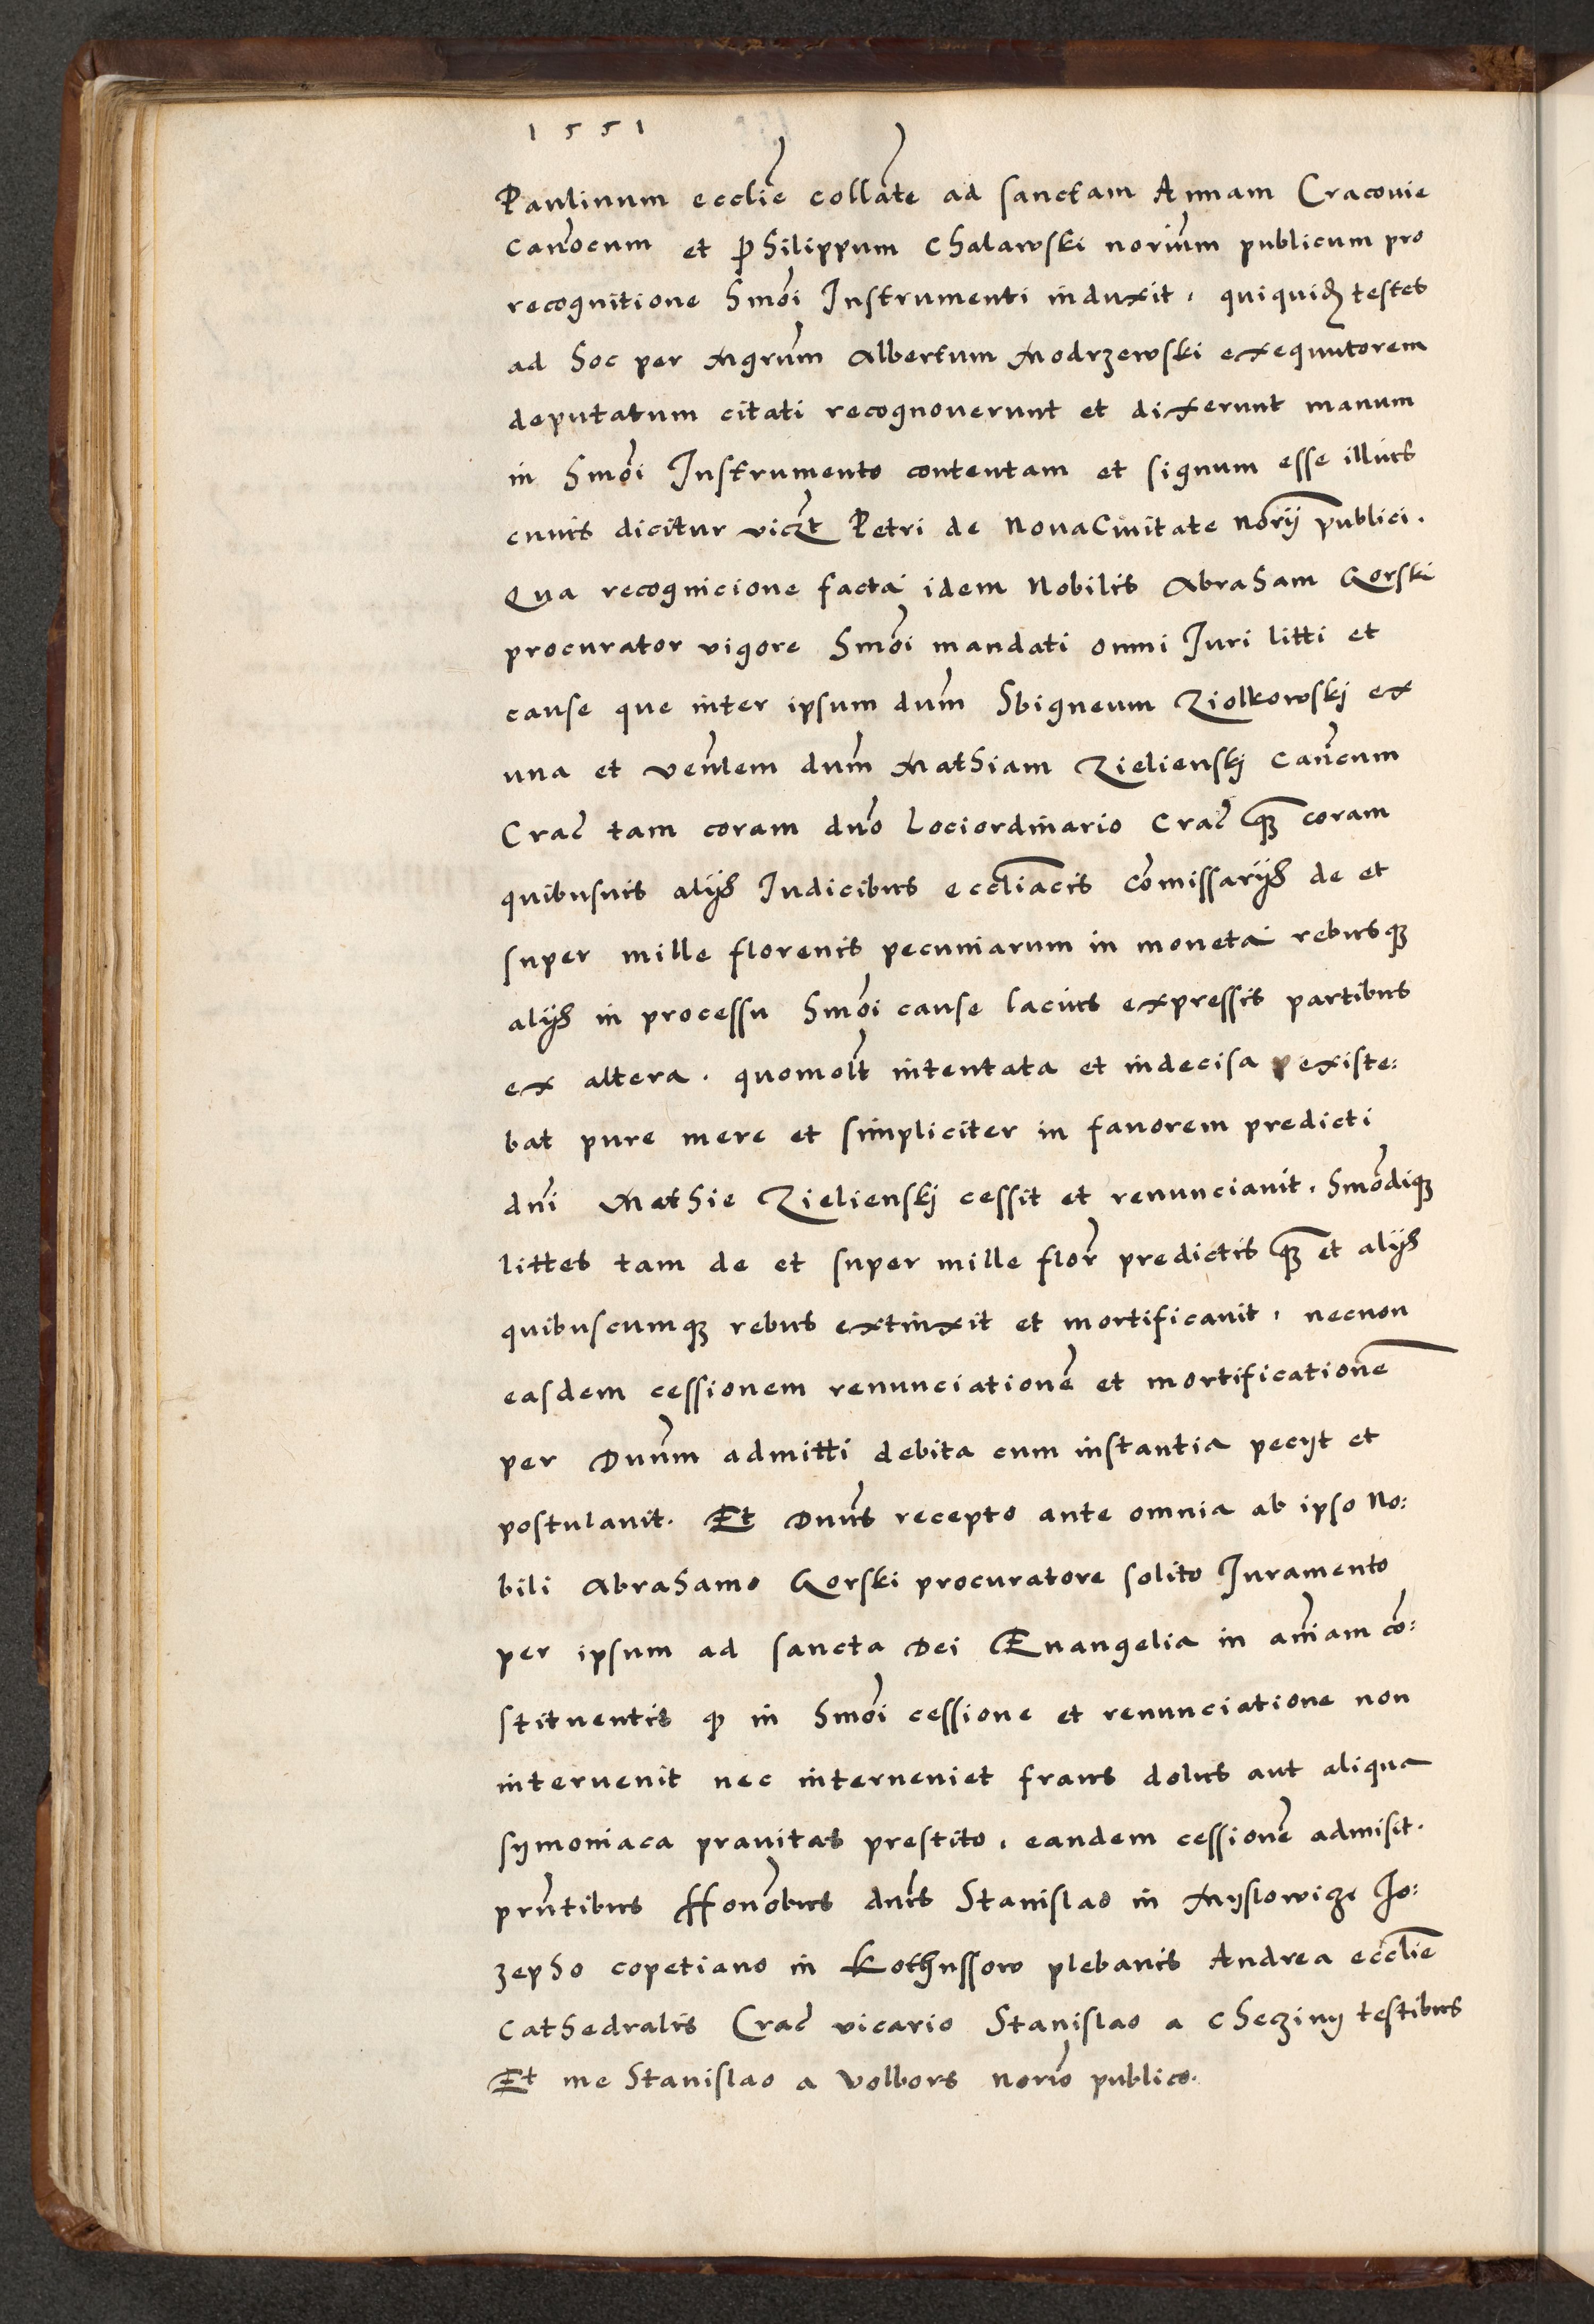 1551
Paulinum ecclie collate ad sanctam Annam Cracouie
canocum et Philippum Chalawski norium publicum pro
recognitione hmoi Instrumenti induxit, quiquid testes
ad hoc per Mgrum Albertum Modrzewski exequutorem
deputatum citati recognouerunt et dixerunt manum
in hmoi Instrumento contentam et signum esse illius
cuius dicitur viczt Petri de Nova Ciuitate norij publici.
Qua recognicione facta idem Nobilis Abraham Gorski
procurator vigore hmoi mandati omni Iuri litti et
cause que inter ipsum dum Sbigneum Ziolkowskj ex
una et venlem dum Mathiam Zielienskj Cancum
Crac tam coram dno Lociordinario Crac q coram
quibusuis alijs Iudicibus eccliacis comissarijs de et
super mille florenis pecuniarum in moneta rebusq
alijs in processu hmoi cause lacius expressis partibus
ex altera. quomolt intentata et indecisa existe:
bat pure mere et simpliciter in fauorem predicti
dni Mathie Zielienskj cessit et renunciauit, hmodiq
littes tam de et super mille flor predictis q et alijs
quibuscumq rebus extinxit et mortificauit, necnon
easdem cessionem renunciatione et mortificatione
per Dnum admitti debita cum instantia pecijt et
postulauit. Et Dnus recepto ante omnia ab ipso No:
bili Abrahamo Gorski procuratore solito Iuramento
per ipsum ad sancta Dei Euangelia in aniam co:
stituentis q in hmoi cessione et renunciatione non
interuenit nec interueniet fraus dolus aut aliqua
symoniaca prauitas prestito, eandem cessione admisit.
prntibus Honobus dnis Stanislao in Myslowicze Io:
zepho copetiano in Kothussow plebanis Andrea ecclie
Cathedralis Crac vicario Stanislao a Checziny testibus
Et me Stanislao a Volbors norio publico.